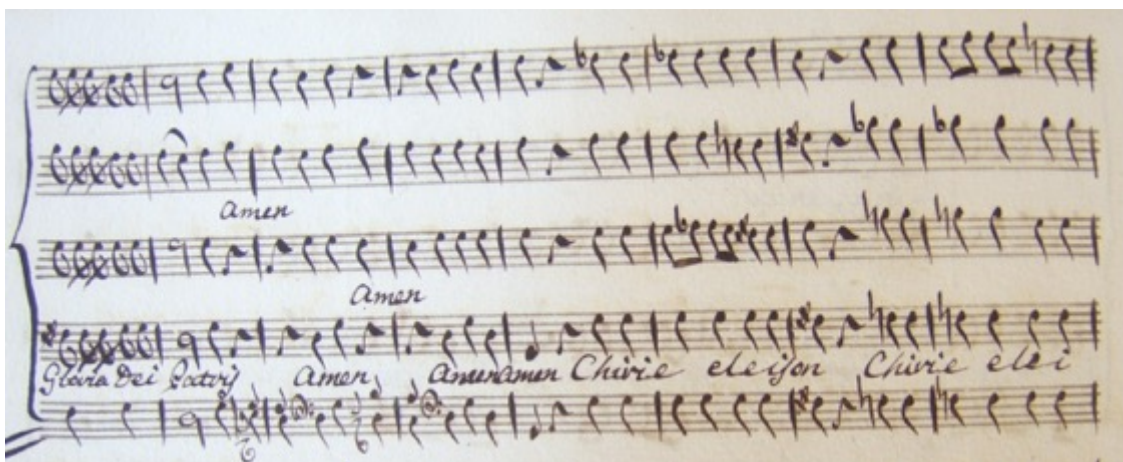 amen
amen
Gloria Dei Patris amen amen amen Chirie eleison Chirie elei